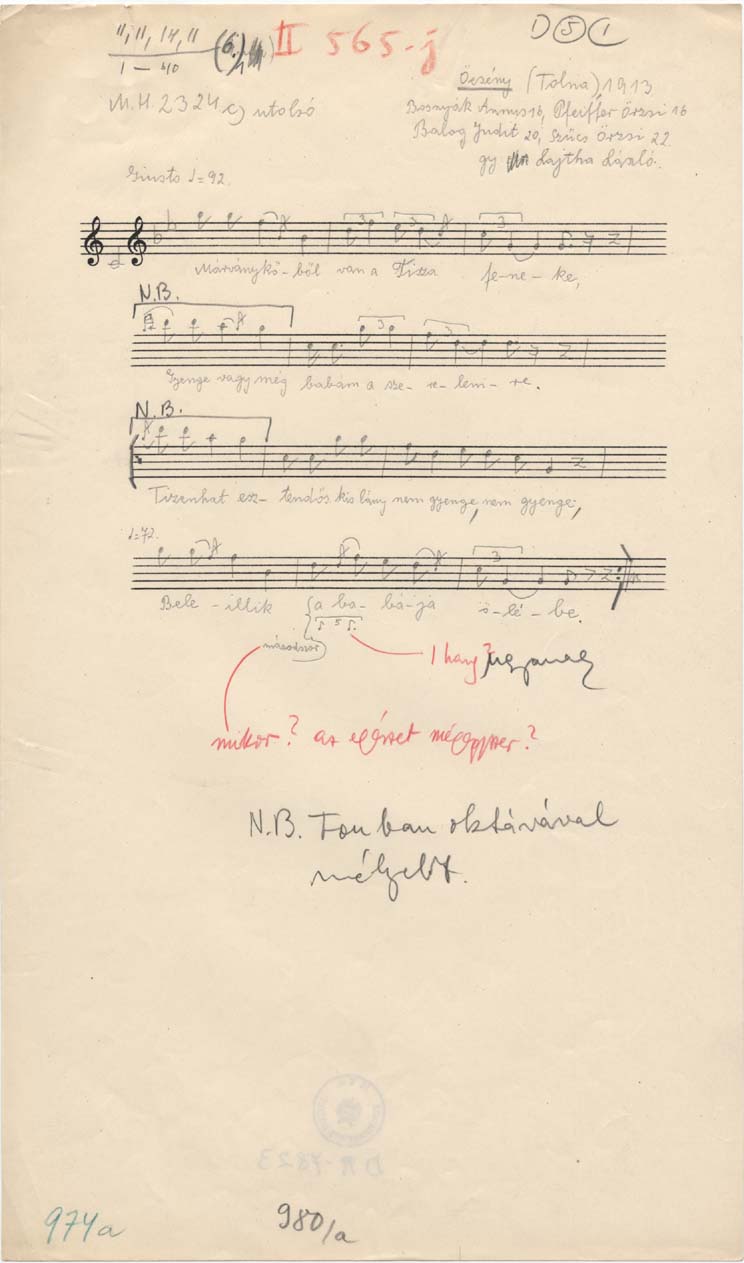 11, 11, 14, 11
1 – 40
(6.)
II 565.-j
D 5 C 1
M.H. 2324 c) utolsó
Őcsény (Tolna) 1913
Bosnyák Annus 16, Pfeiffer Örzsi 16
Balog Judit 20, Szűcs Örzsi 22
gy Lajtha László.
Giusto ♩=92.
Márványkő-ből van a Tisza fe-ne-ke,
N.B.
Gyenge vagy még babám a sze-re-lem-re.
N.B.
Tizenhat esz-tendős kis lány nem gyenge, nem gyenge,
♩=72.
Bele-illik a ba-bá-ja ö-lé-be.
5
másodszor
1 hang? ugyanaz
mikor? az egészet mégegyszer?
N.B. Fonban oktávával
mélyebb.
DR-7823
974a
980/a